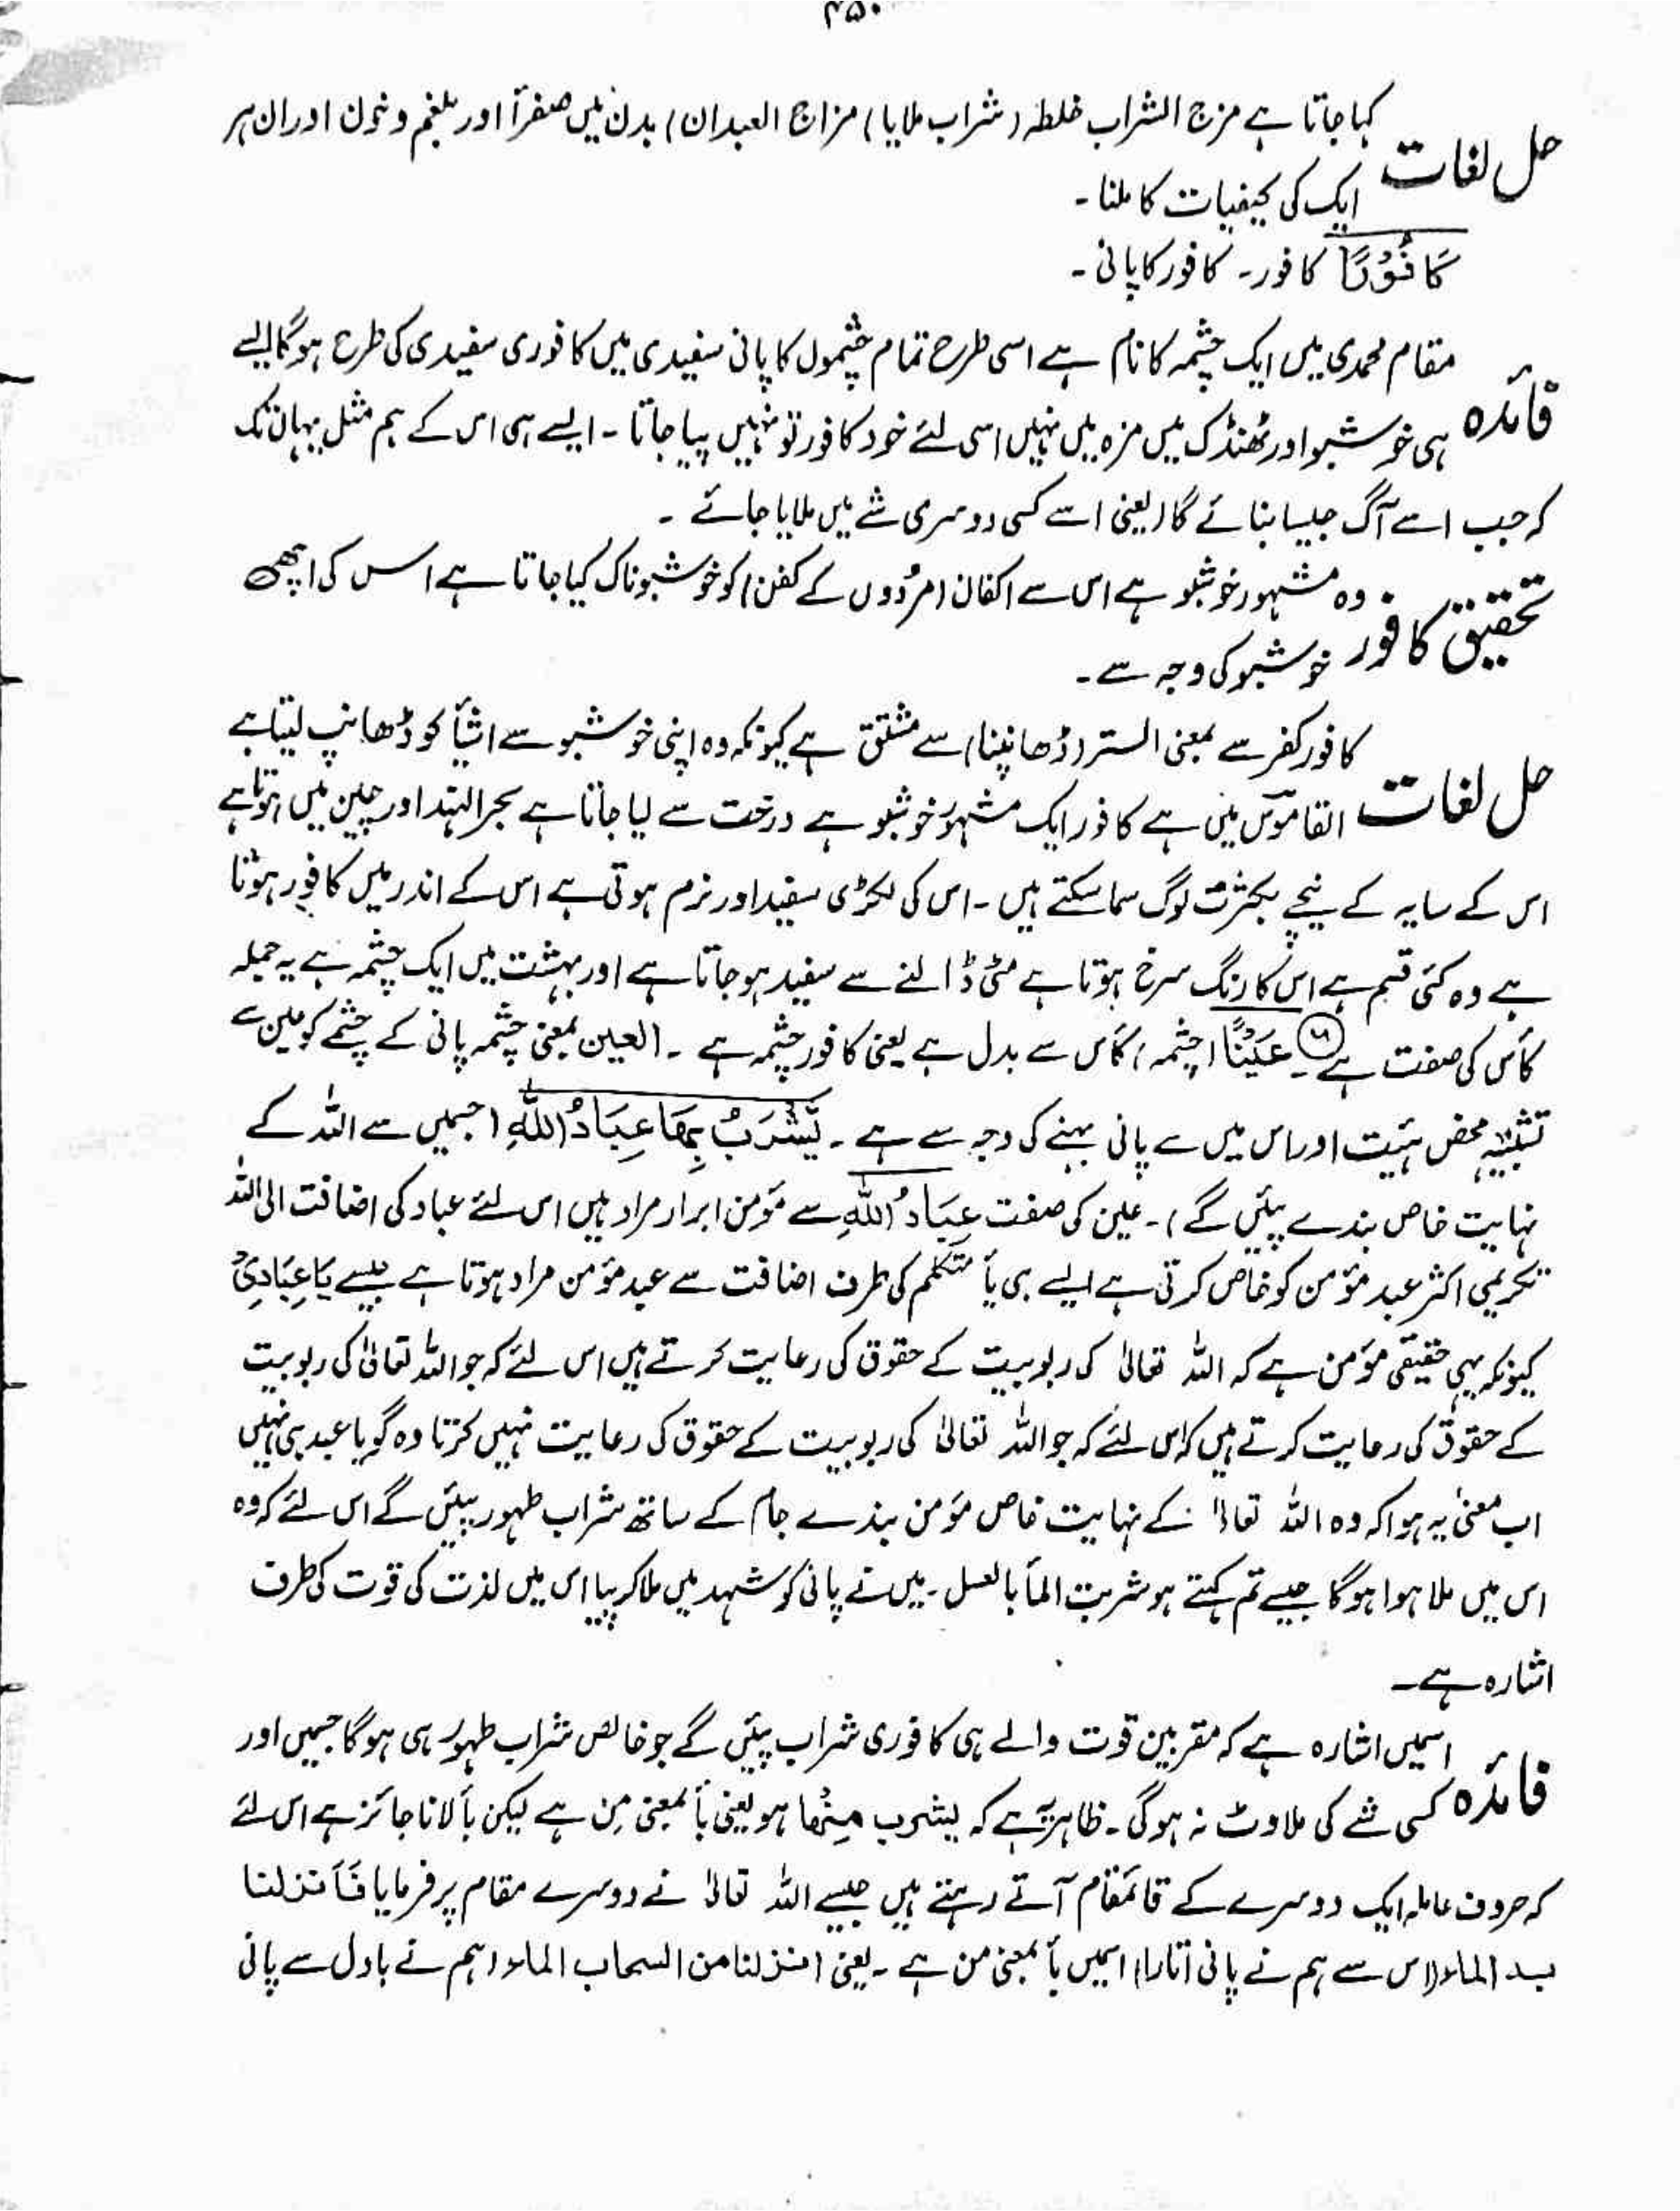 ۴۵۰
حل لغات کہا جاتا ہے مزج الشراب خلطہ (شراب ملایا) مزاج العبدان) بدن میں صفرأ اور بلغم و خون اور ان ہر
ایک کی کیفیات کا ملنا ۔
كَافُوْرًا کافور ۔ کافور کا پانی ۔
فائدہ مقام محمدی میں ایک چشمہ کا نام ہے اسی طرح تمام چشموں کا پانی سفیدی میں کافوری سفیدی کی طرح ہوگا ایسے
ہی خوشبو اور ٹھنڈک میں مزہ میں نہیں اسی لئے خود کافور تو نہیں پیا جاتا ۔ ایسے ہی اس کے ہم مثل یہاں تک
کہ جب اسے آگ جیسا بنائے گا (یعنی اسے کسی دوسری شے میں ملایا جائے ۔
تحقیق کافور وہ مشہور خوشبو ہے اس سے اکفان (مُردوں کے کفن) کو خوشبوناک کیا جاتا ہے اس کی اچھی
خوشبو کی وجہ سے ۔
حل لغات کافور کفر سے بمعنی الستر (ڈھانپنا) سے مشتق ہے کیونکہ وہ اپنی خوشبو سے اشیأ کو ڈھانپ لیتا ہے
القاموس میں ہے کافور ایک مشہور خوشبو ہے درخت سے لیا جاتا ہے بحر الہند اور چین میں ہوتا ہے
اس کے سایہ کے نیچے بکثرت لوگ سما سکتے ہیں ۔ اس کی لکڑی سفید اور نرم ہوتی ہے اس کے اندر میں کافور ہوتا
ہے وہ کئی قسم ہے اس کا رنگ سرخ ہوتا ہے مٹی ڈالنے سے سفید ہو جاتا ہے اور بہشت میں ایک چشمہ ہے یہ جملہ
کأس کی صفت ہے ۔ ۶ عَيْنًا (چشمہ) کأس سے بدل ہے یعنی کافور چشمہ ہے ۔ العین بمعنی چشمہ پانی کے چشمے کو عین سے
تشبیہ محض ہئیت اور اس میں سے پانی بہنے کی وجہ سے ہے ۔ يَّشْرَبُ بِهَا عِبَادُ اللّٰهِ (جسمیں سے اللہ کے
نہایت خاص بندے پئیں گے) ۔ عین کی صفت عِبَادُ اللّٰهِ سے مؤمن ابرار مراد ہیں اس لئے عباد کی اضافت الی اللہ
تکریمی اکثر عبد مؤمن کو خاص کرتی ہے ایسے ہی یأ متکلم کی طرف اضافت سے عبد مؤمن مراد ہوتا ہے جیسے یَا عِبَادِیْ
کیونکہ یہی حقیقی مؤمن ہے کہ اللہ تعالیٰ کی ربوبیت کے حقوق کی رعایت کرتے ہیں اس لئے کہ جو اللہ تعالیٰ کی ربوبیت
کے حقوق کی رعایت کرتے ہیں کہ اس لئے کہ جو اللہ تعالیٰ کی ربوبیت کے حقوق کی رعایت نہیں کرتا وہ گویا عبد ہی نہیں
اب معنیٰ یہ ہوا کہ وہ اللہ تعالیٰ کے نہایت خاص مؤمن بندے جام کے ساتھ شراب طہور پئیں گے اس لئے کہ وہ
اس میں ملا ہوا ہوگا جیسے تم کہتے ہو شربت المأ بالعسل ۔ میں نے پانی کو شہد میں ملا کر پیا اس میں لذت کی قوت کی طرف
اشارہ ہے ۔
فائدہ اسمیں اشارہ ہے کہ مقربین قوت والے ہی کافوری شراب پئیں گے جو خالص شراب طہور ہی ہوگا جسمیں اور
کسی شے کی ملاوٹ نہ ہوگی ۔ ظاہر یہ ہے کہ یشرب منها ہو یعنی بأ بمعنی مِن ہے لیکن بأ لانا جائز ہے اس لئے
کہ حروف عاملہ ایک دوسرے کے قائمقام آتے رہتے ہیں جیسے اللہ تعالیٰ نے دوسرے مقام پر فرمایا فَاَنزلنا
بہ الماء (اس سے ہم نے پانی اتارا) اسمیں بأ بمعنی من ہے ۔ یعنی انزلنا من السحاب الماء (ہم نے بادل سے پانی